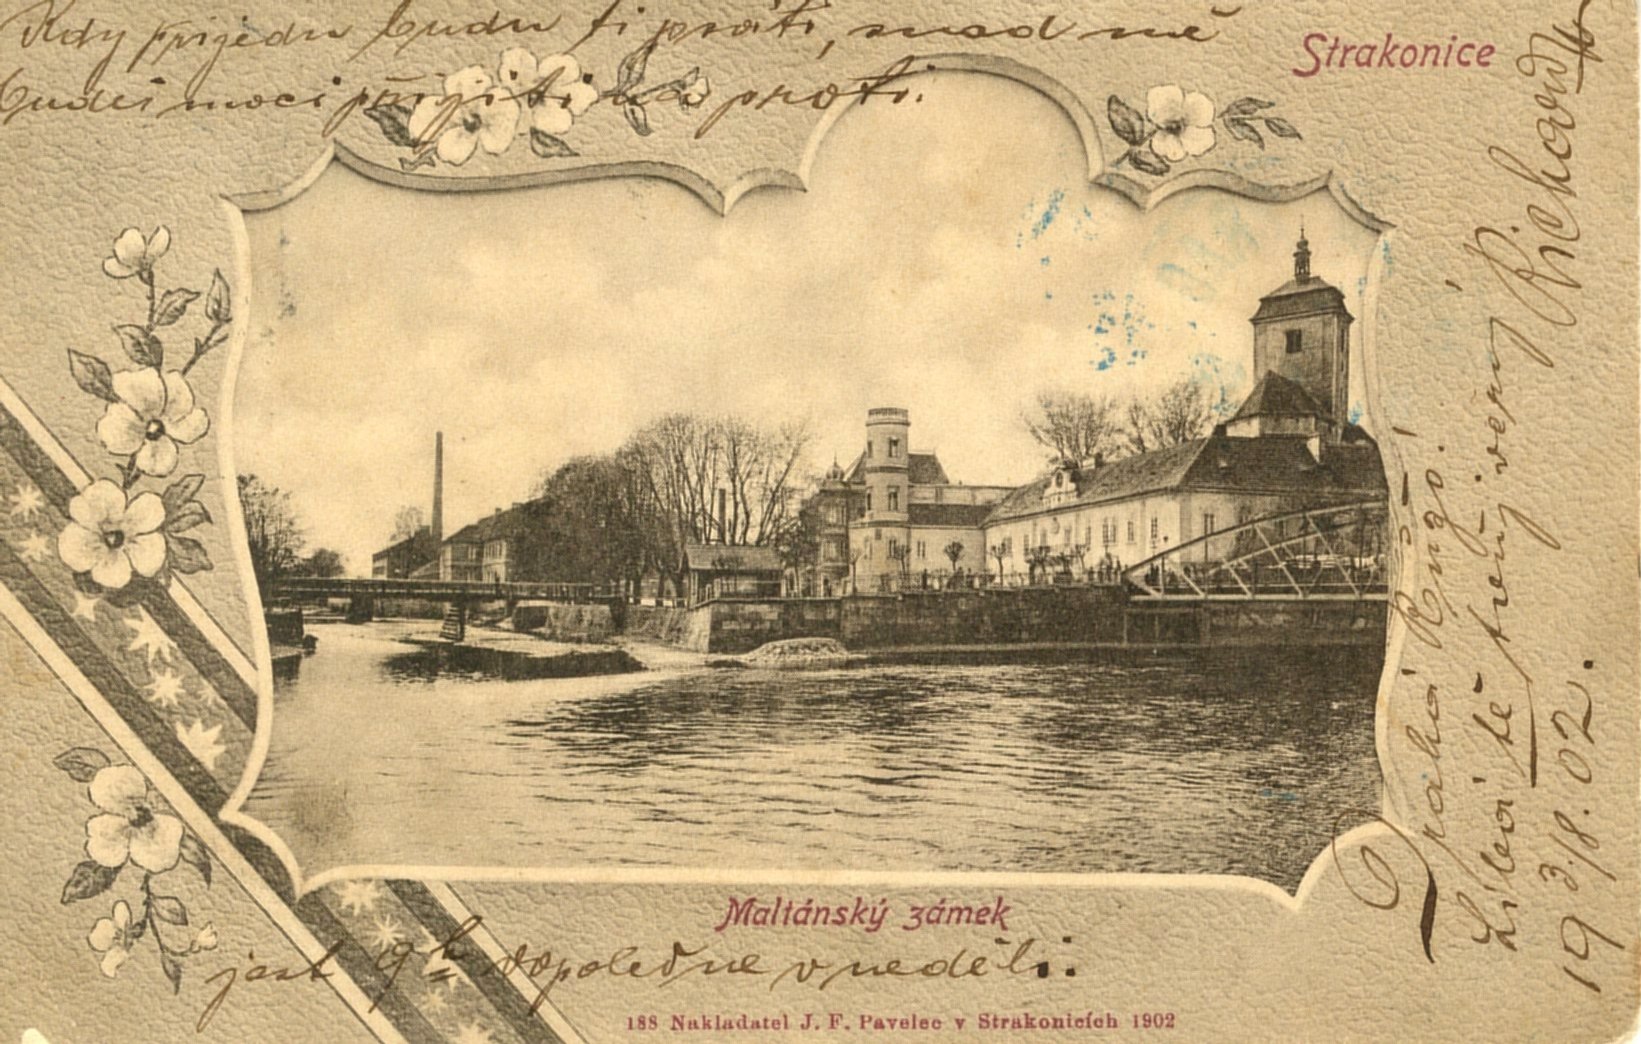 Kdy přijedu budu ti psáti, snad mě
budeš moci přijíti na proti.
Strakonice
Drahá Růžo!
Líbá tě tvůj věrný Richard
19 3/8. 02.
Maltánský zámek
jest 9h dopoledne v neděli.
188 Nakladatel J. F. Pavelec v Strakonicích 1902